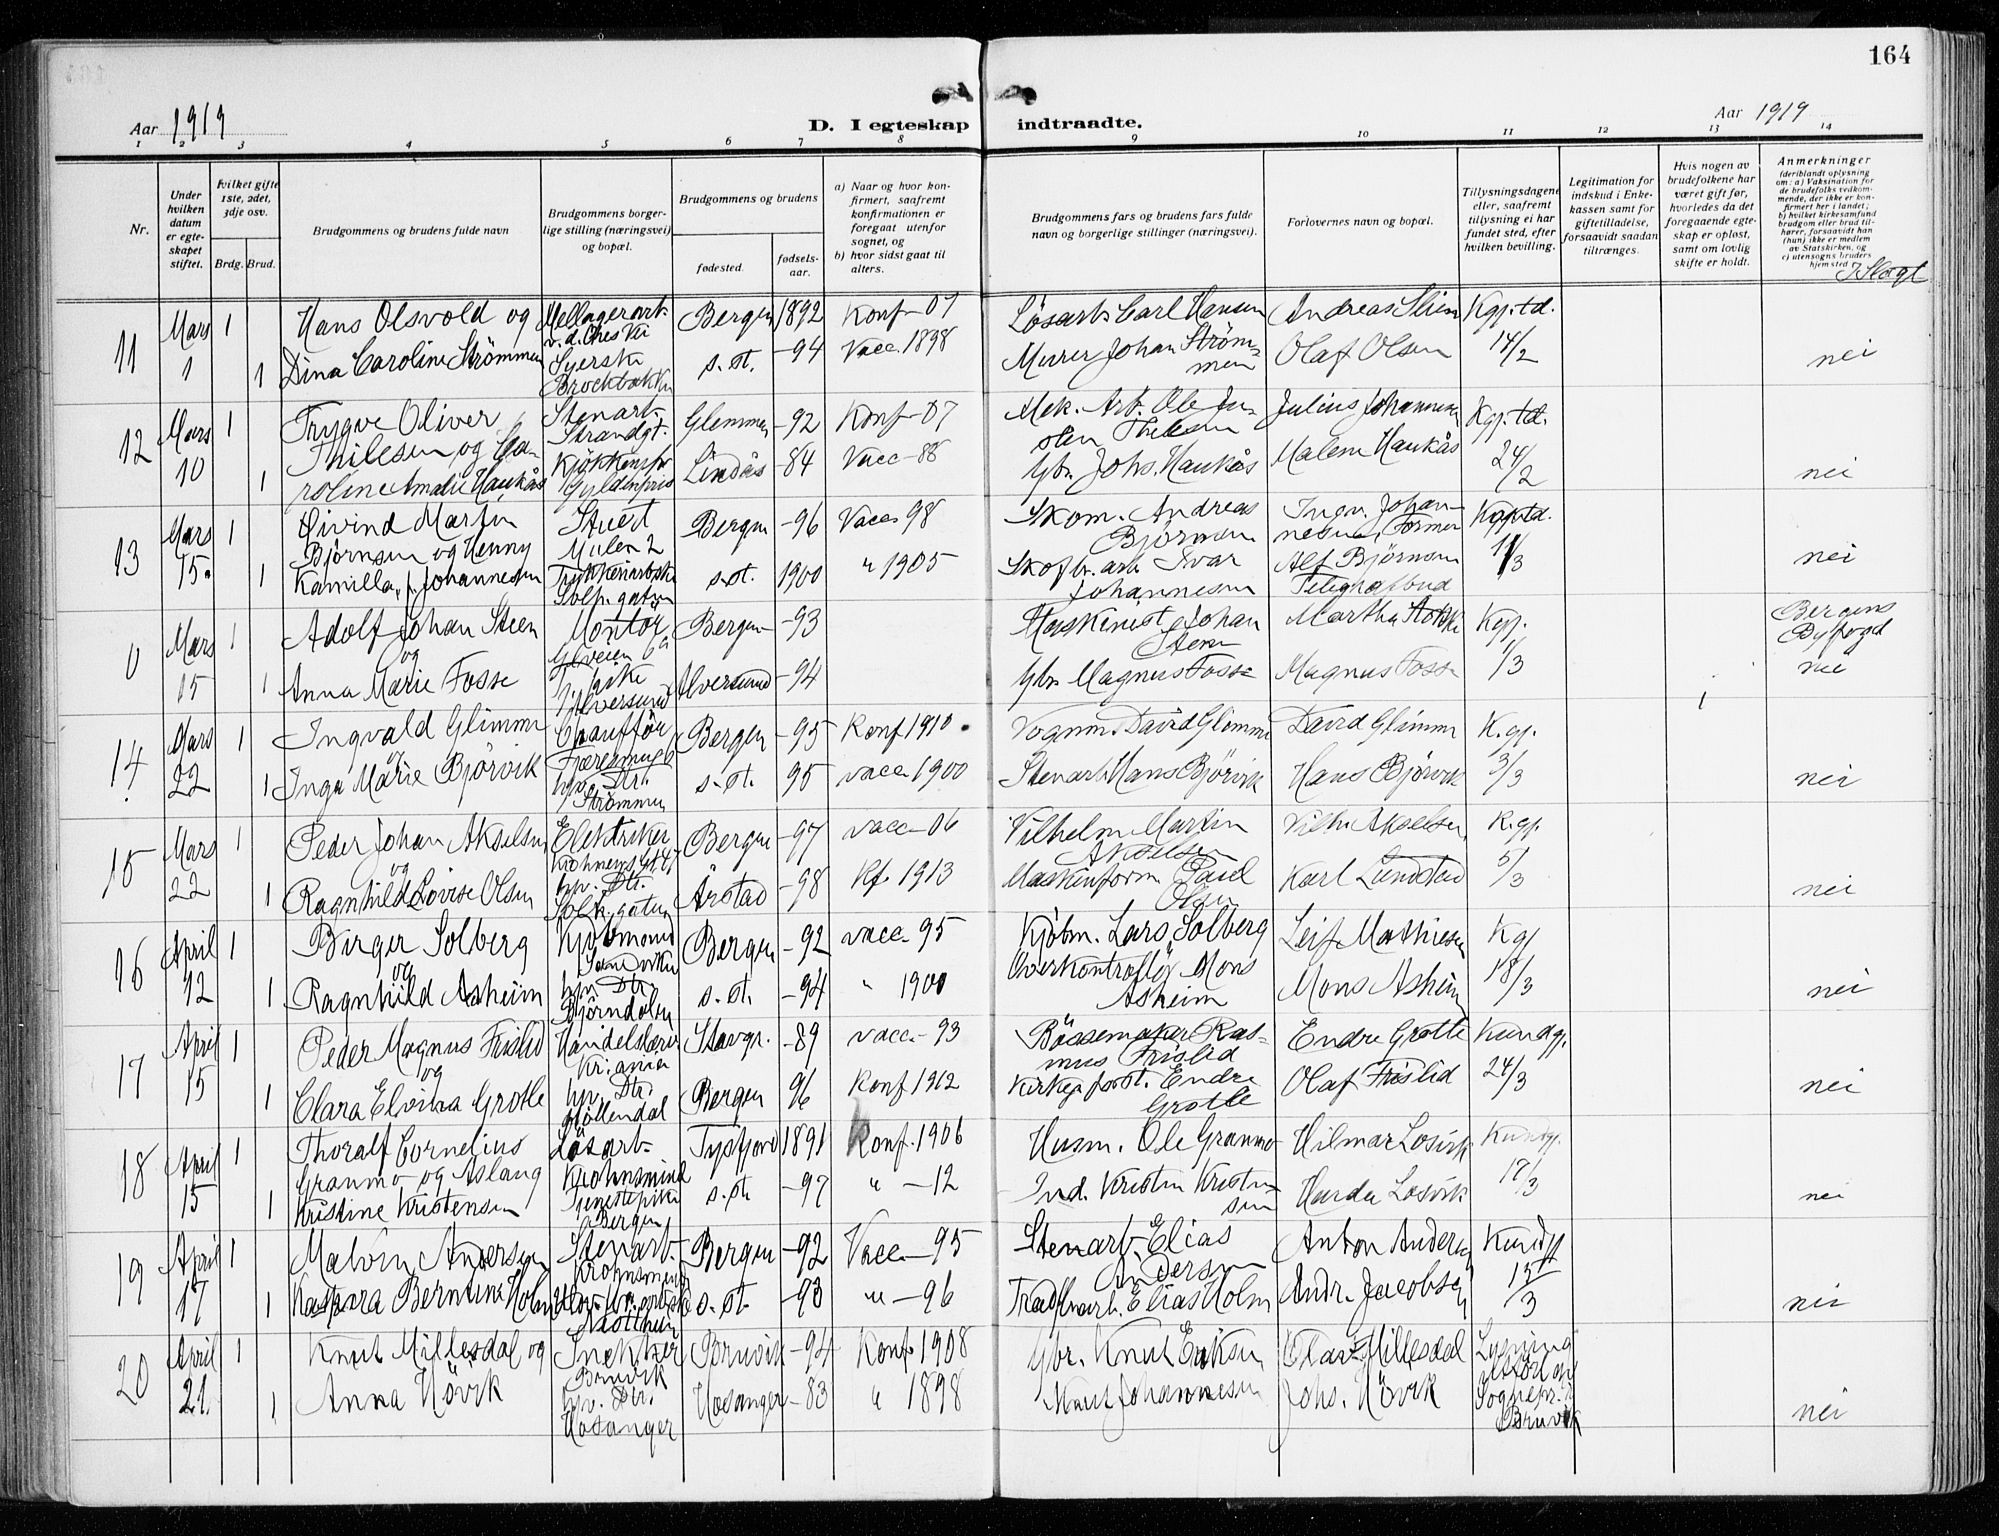 164
Aar 1919
D. I egteskap indtraadte.
Aar 1919
1 2 3 4 5 6 7 8 9 10 11 12 13 14
Nr.
Under hvilken datum er egteskapet stiftet.
Hvilket gifte 1ste, 2det, 3dje osv.
Brdg. Brud.
Brudgommens og brudens fulde navn
Brudgommens borgerlige stilling (næringsvei) og bopæl.
Brudgommens og brudens
fødested.
fødselsaar.
a) Naar og hvor konfirmert, saafremt konfirmationen er foregaat utenfor sognet, og
b) hvor sidst gaat til alters.
Brudgommens fars og brudens fars fulde navn og borgerlige stillinger (næringsvei).
Forlovernes navn og bopæl.
Tillysningsdagene eller, saafremt tillysning ei har fundet sted, efter hvilken bevilling.
Legitimation for indskud i Enkekassen samt for giftetilladelse, forsaavidt saadan tiltrænges.
Hvis nogen av brudefolkene har været gift før, hvorledes da det foregaaende egteskap er opløst, samt om lovlig skifte er holdt.
Anmerkninger
(deriblandt oplysning om: a) Vaksination for de brudefolks vedkommende, der ikke er konfirmert her i landet; b) hvilket kirkesamfund brudgom eller brud tilhører, forsaavidt han (hun) ikke er medlem av Statskirken, og c) utensogns bruders hjemsted
11 Mars 1 Hans Olsvold og Bergen 1892 Konf-07 Løsarb. Carl Hansen Andreas Kgj. td.
1 1 Dina Caroline Strømmen Syerske s. st. -94 Vacc. 1898 Murer Johan Strømmen Olaf Olsen 14/2 nei
12 Mars 1 Trygve Oliver Stenarb. Strandgt. Glemmen -92 Konf-07 Mek. Arb. Ole Julius Johannesen Kgj. td.
Thilesen og Ca-
10 1 roline Amalie Haukås Lindås -84 Vacc-88 Gbr. Johs. Haukås Malem Haukås 24/2 nei
13 Mars 1 Øivind Martin Stuert Bergen -96 Vacc 98 Skom. Andreas Bjørnsen Ingv. Johannesen, Former
Bjørnsen og Henny Mulen 2
15. 1 Kamilla Johannesen s. st. 1900 " 1905 Skofbr. arb. Ivar Johannesen Alf Bjørnsen 11/3 nei
0 Mars 1 Adolf Johan Steen Montör Bergen -93 Maskinist Johan Steen Martha Kgj. Bergens Byfogd
og
15 1 Anna Marie Fosse Alversund Alversund -94 Gbr. Magnus Fosse Magnus Fosse 1/3 nei
14 Mars 1 Ingvald Glimme Chauffør Bergen -95 Konf 1910 Vognm. David Glimme David Glimme K. gj.
og
22 1 Inga Marie Bjørvik hjv. Dtr. Strømmen s. st. 95 vacc 1900 Stenarb. Hans Bjørvik Hans Bjørvik 3/3 nei
15 Mars 1 Peder Johan Akselsen Elektriker Bergen -97 vacc-06 Vilhelm Martin Akselsen Vilh. Akselsen K. gj.
og
22 1 Ragnhild Lovise Olsen hjv. Dtr. Årstad -98 Kf. 1913 Maskinform. Paul Olsen Karl Lundstad 5/3 nei
16 April 1 Birger Solberg Kjöbmand Sandviken Bergen -92 vacc-95 Kjöbm. Lars Solberg Leif Mathiesen Kgj
og
12 1 Ragnhild Asheim hjv. Dtr. Björndalen s. st. -94 " 1900 Overkontrollør Mons Asheim Mons Asheim 18/3 nei
17 April 1 Peder Magnus Frislid Kr.ania Stavgr. -89 vacc-93 Bössemaker Rasmus Frislid Endre Grotle Kundgj.
og
15 1 Clara Elvina Grotle hjv. Dtr. Møllendal Bergen 96 Konf 1912 Kirkegforst. Endre Grotle Olaf Frislid 24/3 nei
18 April 1 Thoralf Cornelius Løsarb. Tysfjord 1891 Konf. 1906 Husm. Ole Granmo Hilmar Losvik Kundgj.
Granmo og Aslaug Krohnsminde
15 1 Kristine Kristensen Tjenestepike Bergen s. st. -97 " -12 Ind. Kristen Kristensen Losvik 17/3 nei
19 April 1 Malvin Andersen Stenarb. Krohnsminde Bergen -92 Vacc-95 Stenarb. Elias Andersen Anton Kundgj
17 1 Kaspara Berntine Holm s. st. -93 " -96 Elias Holm Andr. Jacobsen 15/3 nei
20 April 1 Knut Millesdal og Snekker Bruvik Bruvik -94 Konf. 1908 Gbr. Knut Eriksen Olav Millesdal Lysning
21. 1 Anna Høvik hjv. Dtr. Hosanger Hosanger -83 " 1898 Knut Johannesen Johs. Høvik Sognepr. i Bruvik nei